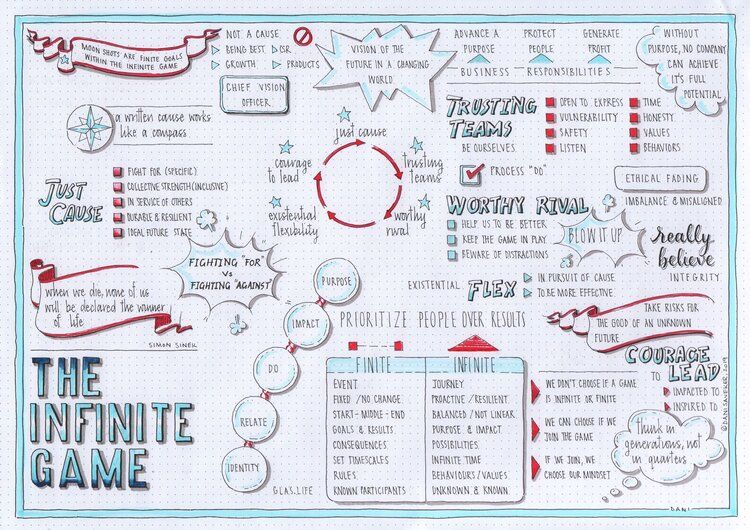 MOON SHOTS ARE FINITE GOALS
WITHIN THE INFINITE GAME
NOT A CAUSE
BEING BEST
CSR
GROWTH
PRODUCTS
CHIEF VISION
OFFICER
VISION OF THE
FUTURE IN A CHANGING
WORLD
ADVANCE A
PURPOSE
PROTECT
PEOPLE
GENERATE
PROFIT
BUSINESS RESPONSIBILITIES
WITHOUT
PURPOSE, NO COMPANY
CAN ACHIEVE
IT'S FULL
POTENTIAL
a written cause works
like a compass
JUST
CAUSE
FIGHT FOR (SPECIFIC)
COLLECTIVE STRENGTH (INCLUSIVE)
IN SERVICE OF OTHERS
DURABLE & RESILIENT
IDEAL FUTURE STATE
just cause
trusting
teams
worthy
rival
existential
flexibility
courage
to lead
TRUSTING
TEAMS
BE OURSELVES
OPEN TO EXPRESS
VULNERABILITY
SAFETY
LISTEN
TIME
HONESTY
VALUES
BEHAVIORS
PROCESS "DO"
ETHICAL FADING
IMBALANCE & MISALIGNED
WORTHY RIVAL
HELP US TO BE BETTER
KEEP THE GAME IN PLAY
BEWARE OF DISTRACTIONS
BLOW IT UP
really
believe
INTEGRITY
EXISTENTIAL FLEX
IN PURSUIT OF CAUSE
TO BE MORE EFFECTIVE
FIGHTING "FOR"
VS
FIGHTING "AGAINST"
when we die, none of us
will be declared the winner
of life
SIMON SINEK
THE
INFINITE
GAME
PURPOSE
IMPACT
DO
RELATE
IDENTITY
GLAS.LIFE
PRIORITIZE PEOPLE OVER RESULTS
FINITE
EVENT
FIXED / NO CHANGE
START - MIDDLE - END
GOALS & RESULTS
CONSEQUENCES
SET TIMESCALES
RULES
KNOWN PARTICIPANTS
INFINITE
JOURNEY
PROACTIVE / RESILIENT
BALANCED / NOT LINEAR
PURPOSE & IMPACT
POSSIBILITIES
INFINITE TIME
BEHAVIOURS / VALUES
UNKNOWN & KNOWN
WE DON'T CHOOSE IF A GAME
IS INFINITE OR FINITE
WE CAN CHOOSE IF WE
JOIN THE GAME
IF WE JOIN, WE
CHOOSE OUR MINDSET
TAKE RISKS FOR
THE GOOD OF AN UNKNOWN
FUTURE
COURAGE
TO LEAD
IMPACTED TO
INSPIRED TO
think in
generations, not
in quarters
DANI